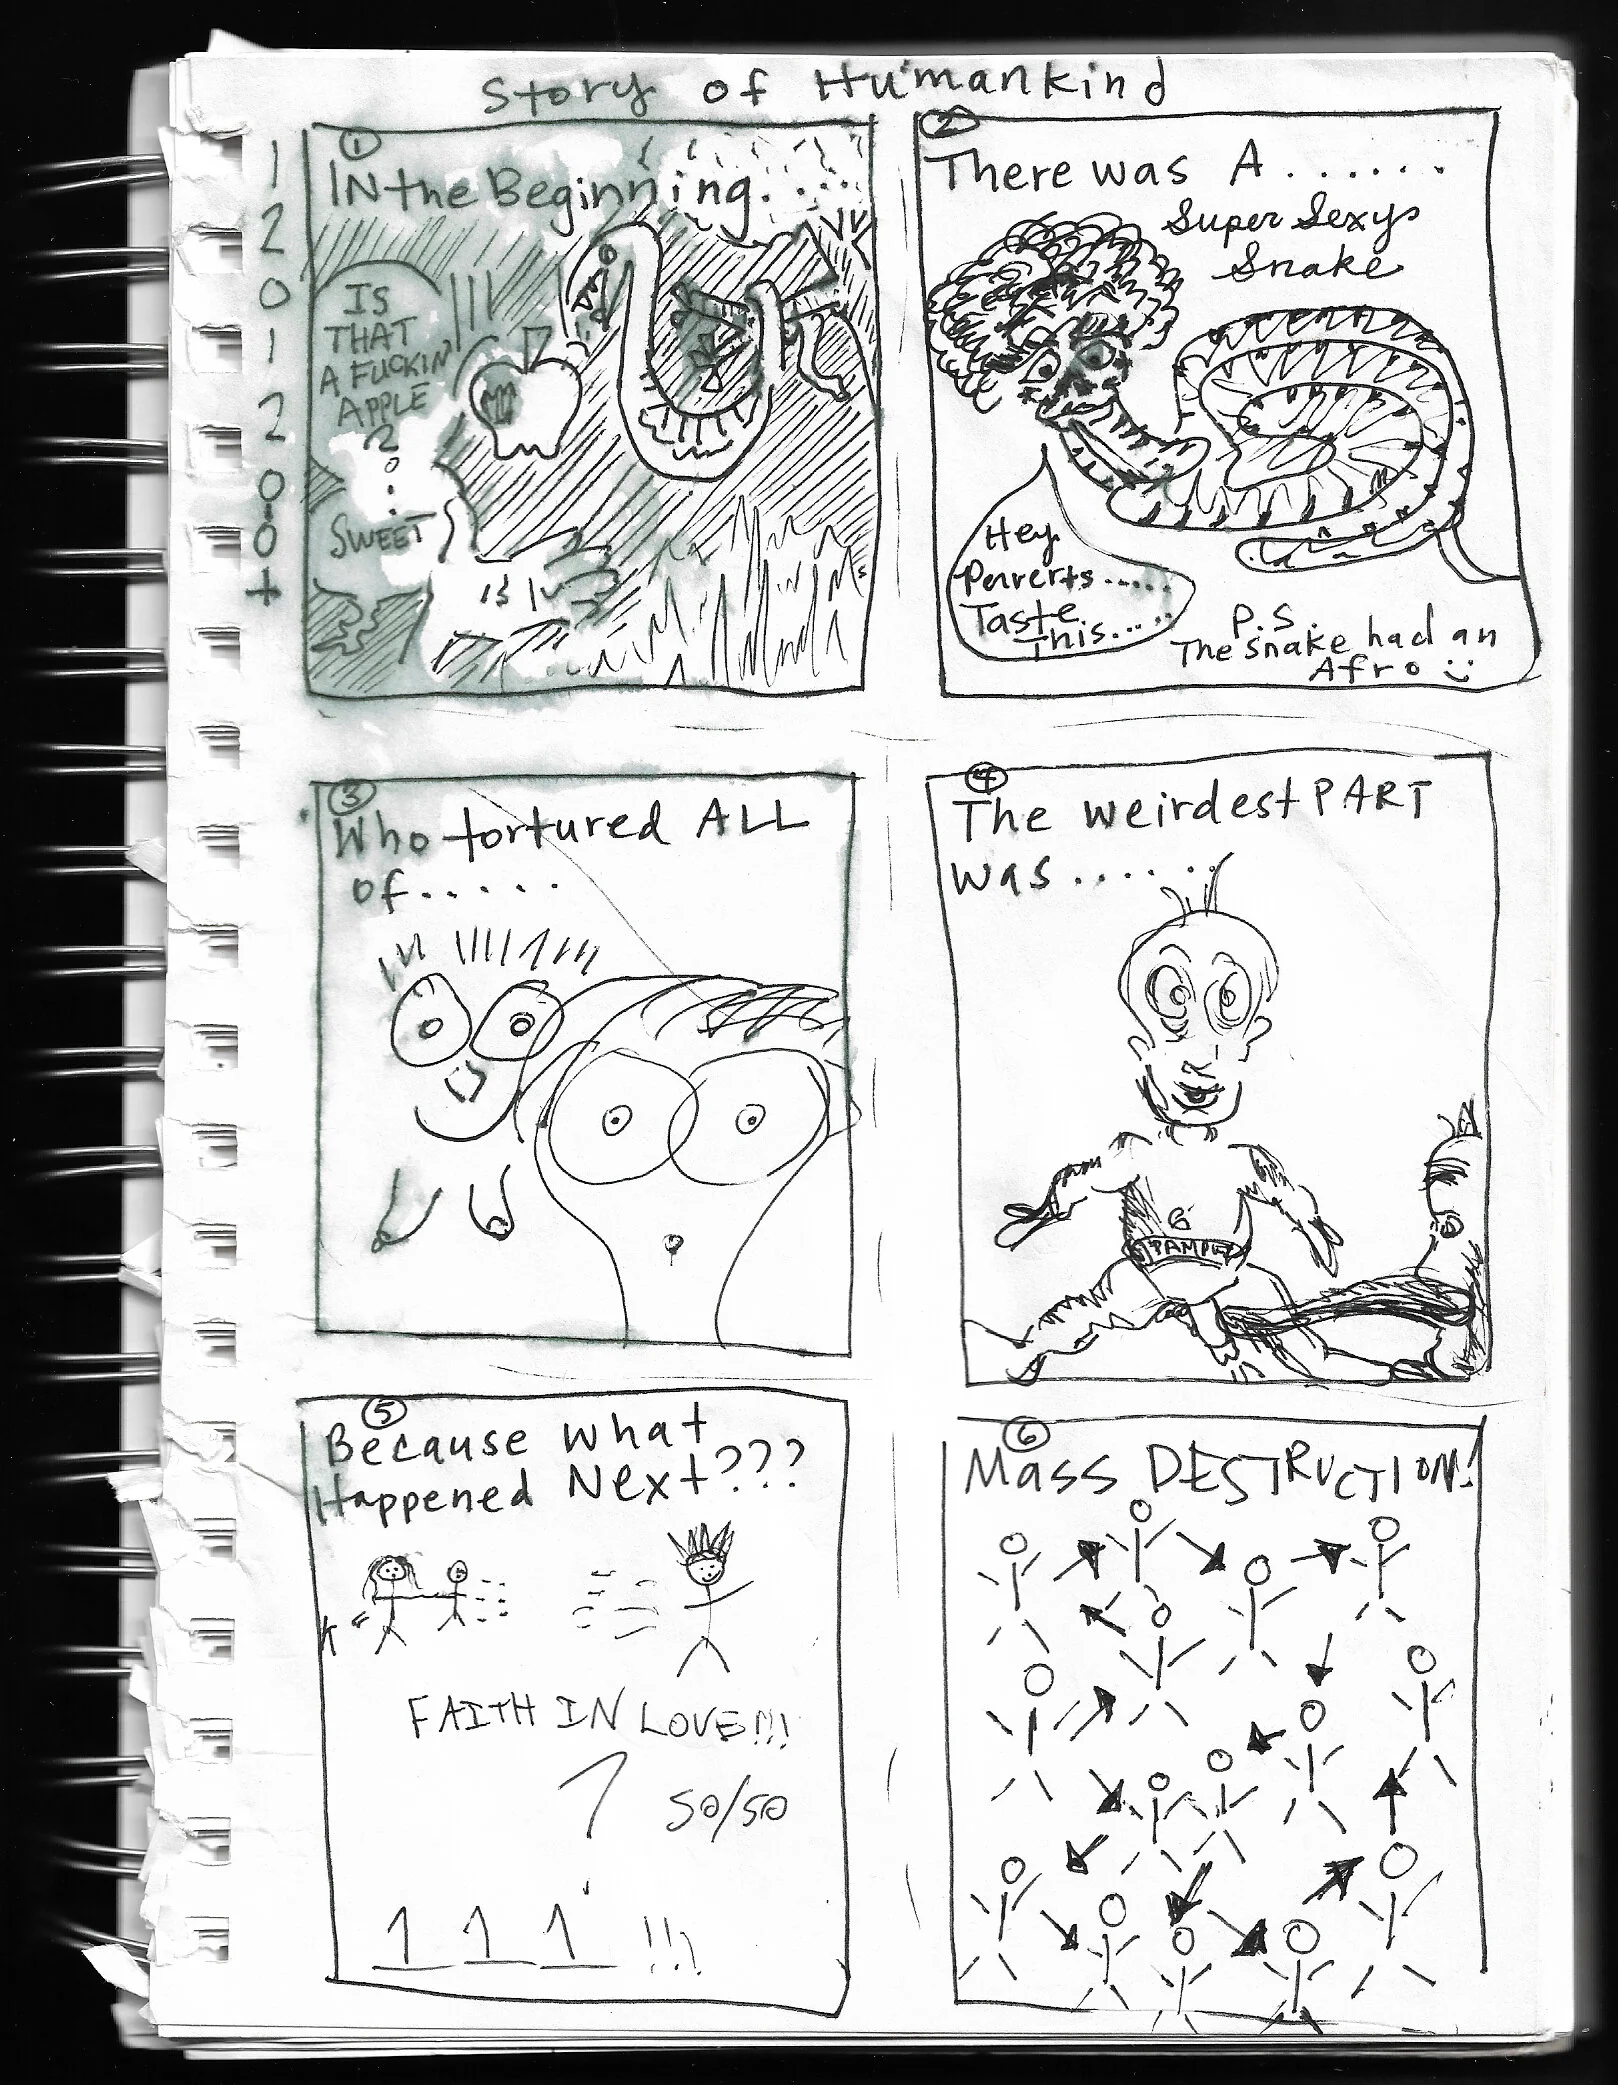 Story of Humankind
1
2
0
1
2
0
0
+
1
IN the Beginning.....
Yes
IS
THAT
A FUCKIN
APPLE
?
SWEET
2
There was A.......
Super Sexy
Snake
Hey
Perverts.....
Taste
This.....
P.S.
The snake had an
Afro :)
3
Who tortured ALL
of.....
4
The weirdest PART
was......
5
Because what
Happened Next???
FAITH IN LOVE!!!
1
50/50
1 1 1 !!!
6
Mass DESTRUCTION!